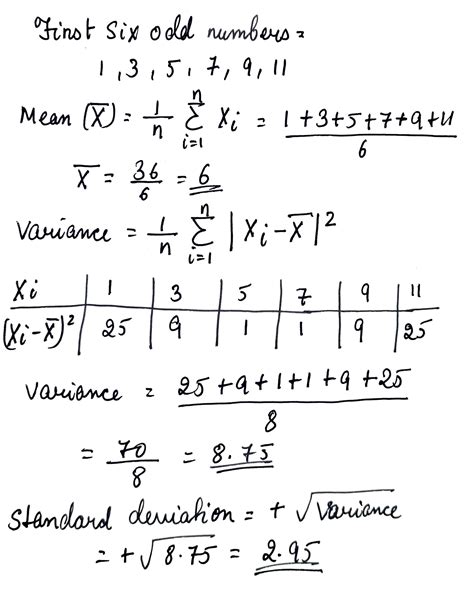 First six odd numbers =
1, 3, 5, 7, 9, 11
Mean (X̅) = 1/n ∑ᵢ₌₁ⁿ Xi = (1+3+5+7+9+11)/6
X̅ = 36/6 = 6
Variance = 1/n ∑ᵢ₌₁ⁿ |Xi-X̅|²
Xi | 1 | 3 | 5 | 7 | 9 | 11
(Xi-X̅)² | 25 | 9 | 1 | 1 | 9 | 25
Variance = (25+9+1+1+9+25)/8
= 70/8 = 8.75
Standard deviation = + √Variance
= +√8.75 = 2.95